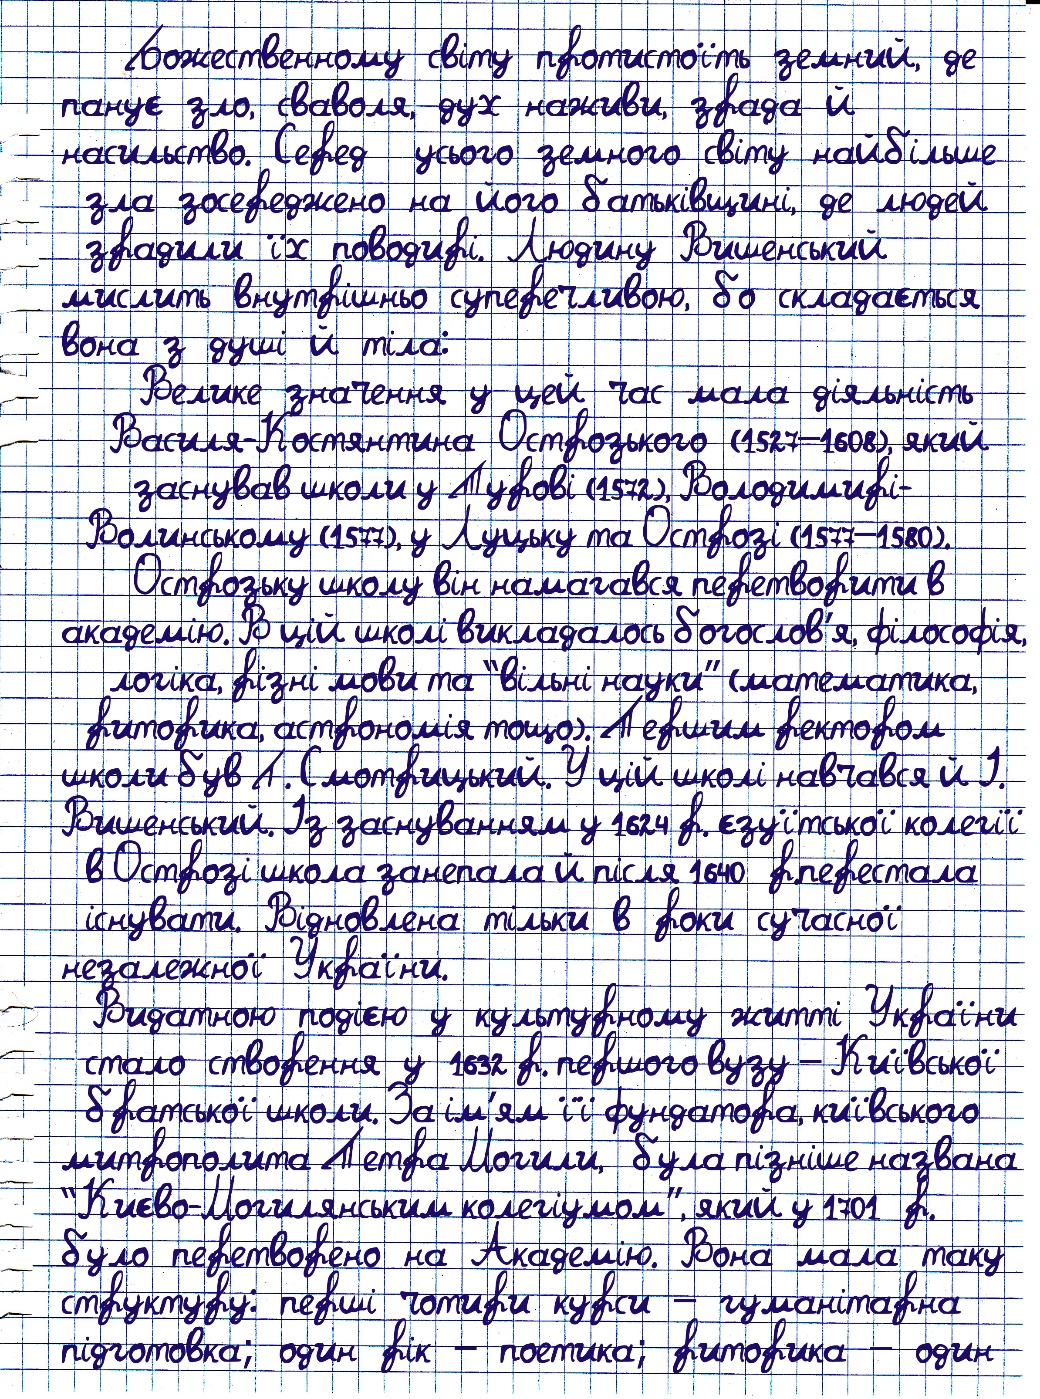 Божественному світу протистоїть земний, де
панує зло, сваволя, дух наживи, зрада й
насильство. Серед усього земного світу найбільше
зла зосереджено на його батьківщині, де людей
зрадили їх поводирі. Людину Вишенський
мислить внутрішньо суперечливою, бо складається
вона з душі й тіла:
Велике значення у цей час мала діяльність
Василя-Костянтина Острозького (1527–1608), який
заснував школи у Турові (1572), Володимирі-
Волинському (1577), у Луцьку та Острозі (1577–1580).
Острозьку школу він намагався перетворити в
академію. В цій школі викладалось богослов'я, філософія,
логіка, різні мови та "вільні науки" (математика,
риторика, астрономія тощо). Першим ректором
школи був Г. Смотрицький. У цій школі навчався й І.
Вишенський. Із заснуванням у 1624 р. єзуїтської колегії
в Острозі школа занепала й після 1640 р.перестала
існувати. Відновлена тільки в роки сучасної
незалежної України.
Видатною подією у культурному житті України
стало створення у 1632 р. першого вузу – Київської
братської школи. За ім'ям її фундатора, київського
митрополита Петра Могили, була пізніше названа
"Києво-Могилянським колегіумом", який у 1701 р.
було перетворено на Академію. Вона мала таку
структуру: перші чотири курси – гуманітарна
підготовка; один рік – поетика; риторика – один